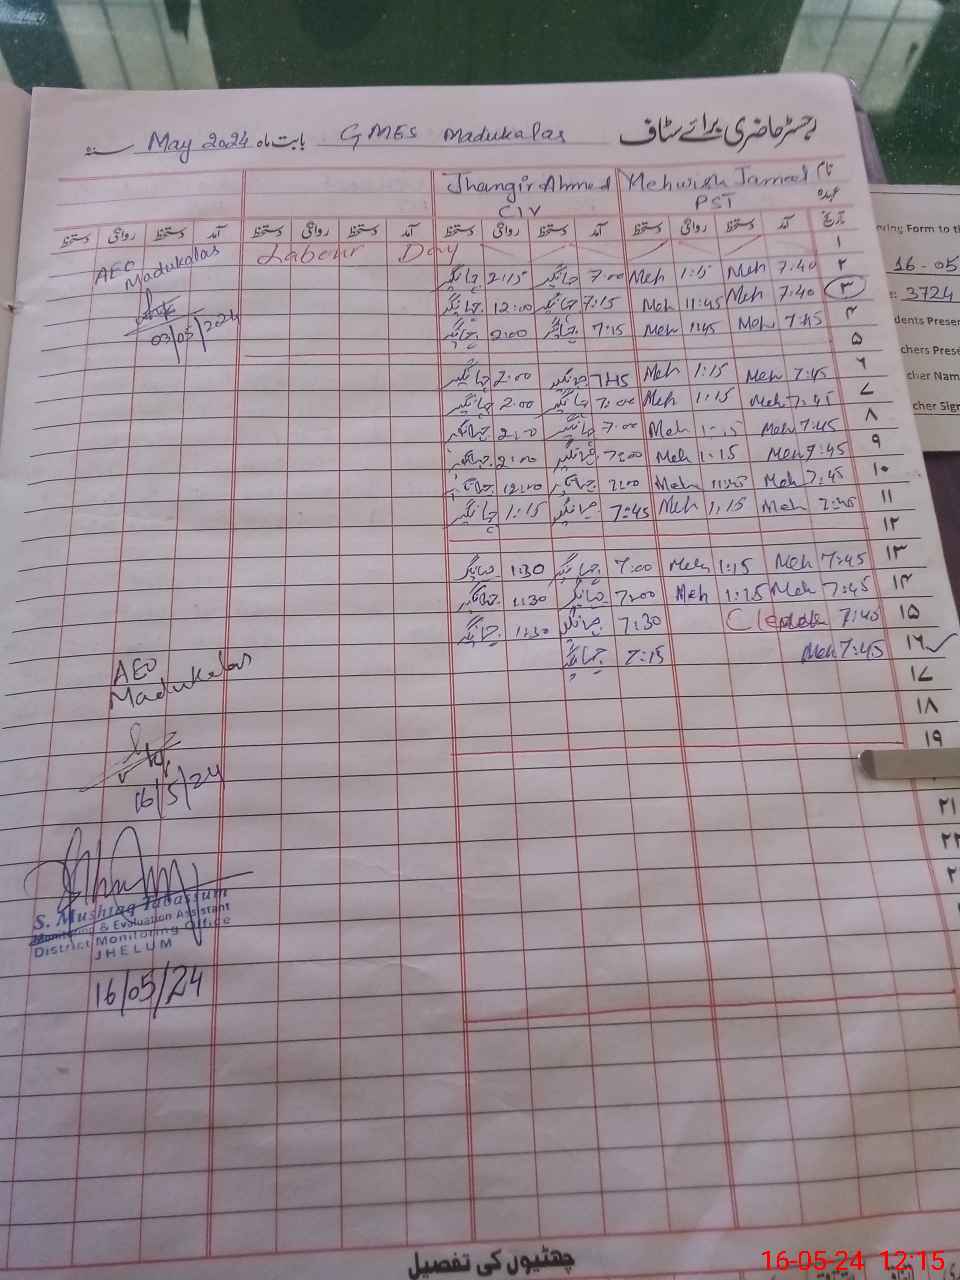 رجسٹر حاضری برائے سٹاف GMES Madukalas بابت ماہ May 2024 سنہ
نام Mehwish Jameel Jhangir Ahmed
عہدہ PST C IV
تاریخ آمد دستخط روانگی دستخط آمد دستخط روانگی دستخط آمد دستخط روانگی دستخط آمد دستخط روانگی دستخط
۱ Labour Day
۲ 7:40 Meh 1:15 Meh 7:00 جہانگیر 2:15 جہانگیر
۳ 7:40 Meh 11:45 Meh 7:15 جہانگیر 12:00 جہانگیر
۴ 7:45 Meh 1:45 Meh 7:15 جہانگیر 2:00 جہانگیر
۵
۶ 7:45 Meh 1:15 Meh 7:45 جہانگیر 2:00 جہانگیر
۷ 7:45 Meh 1:15 Meh 7:00 جہانگیر 2:00 جہانگیر
۸ 7:45 Meh 1:15 Meh 7:00 جہانگیر 2:00 جہانگیر
۹ 7:45 Meh 1:15 Meh 7:00 جہانگیر 2:00 جہانگیر
۱۰ 7:45 Meh 11:45 Meh 7:00 جہانگیر 12:00 جہانگیر
۱۱ 7:45 Meh 1:15 Meh 7:45 جہانگیر 1:15 جہانگیر
۱۲
۱۳ 7:45 Meh 1:15 Meh 7:00 جہانگیر 1:30 جہانگیر
۱۴ 7:45 Meh 1:15 Meh 7:00 جہانگیر 1:30 جہانگیر
۱۵ 7:40 7:30 جہانگیر 1:30 جہانگیر
۱۶ 7:45 Meh 7:15 جہانگیر
۱۷
۱۸
۱۹
۲۱
۲۲
AEO
Madukalas
03/05/2024
AEO
Madukalas
16/5/24
S. Mushtaq Tabassum
Monitoring & Evaluation Assistant
District Monitoring Office
JHELUM
16/05/24
چھٹیوں کی تفصیل
ving Form to th
16-05
3724
dents Presen
chers Prese
cher Nam
cher Sign
16-05-24 12:15